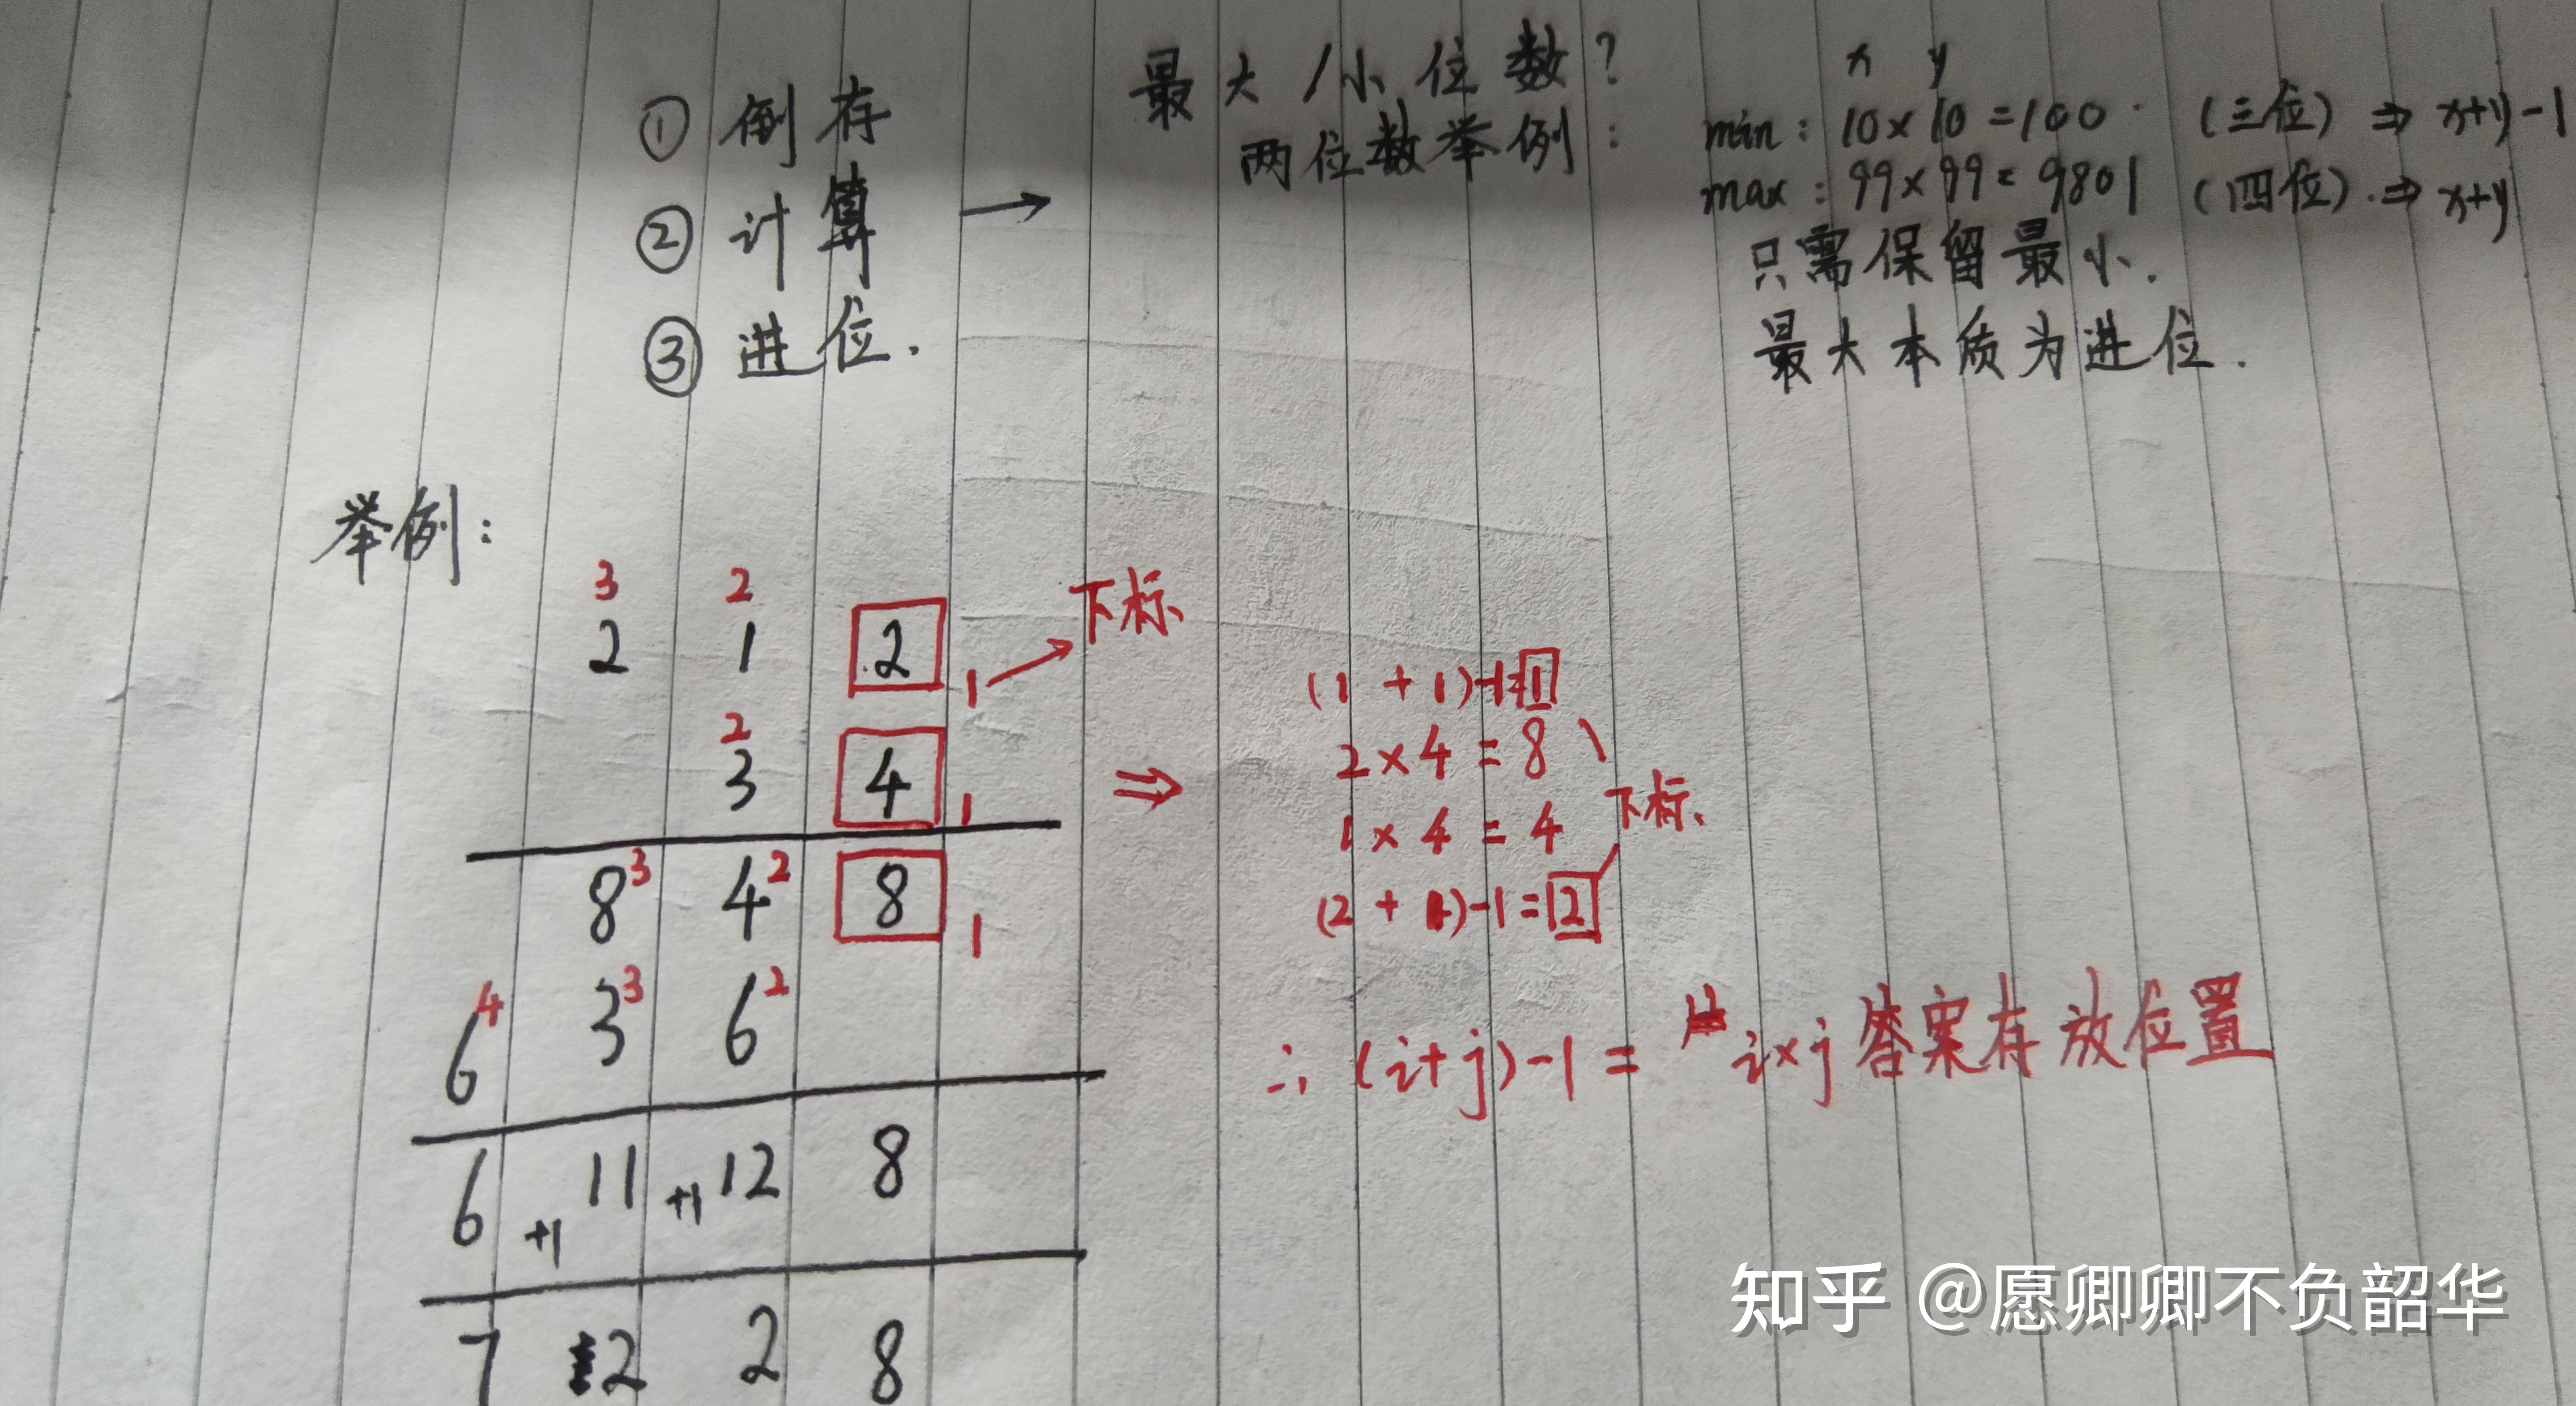 ① 倒存
② 计算 →
③ 进位.
最大/小位数?
两位数举例:
x y
min: 10×10=100 (三位) ⇒ x+y-1
max: 99×99=9801 (四位) ⇒ x+y
只需保留最小.
最大本质为进位.
举例:
3 2
2 1 2 1 → 下标
2
3 4 1
8³ 4² 8 1
6⁴ 3³ 6²
6 +1 11 +1 12 8
7 2 2 8
⇒
(1 + 1)-1=1
2×4=8
1×4=4 下标
(2+1)-1=2
∴ (i+j)-1 = i×j答案存放位置
知乎 @愿卿卿不负韶华